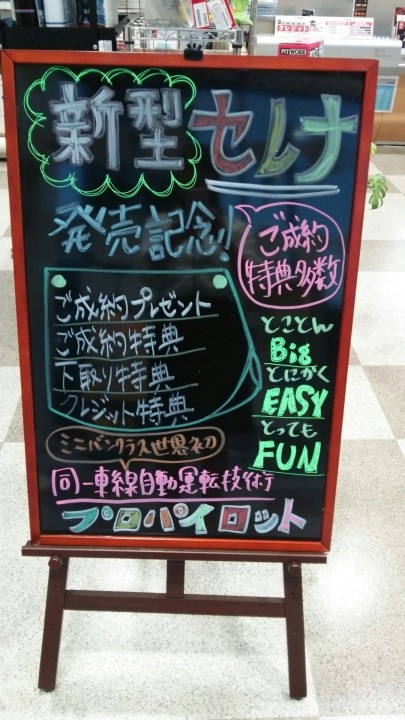 新型セレナ
発売記念!
ご成約
特典多数
ご成約プレゼント
ご成約特典
下取り特典
クレジット特典
とことん
Big
とにかく
EASY
とっても
FUN
ミニバンクラス世界初
同一車線自動運転技術
プロパイロット
PITWORK